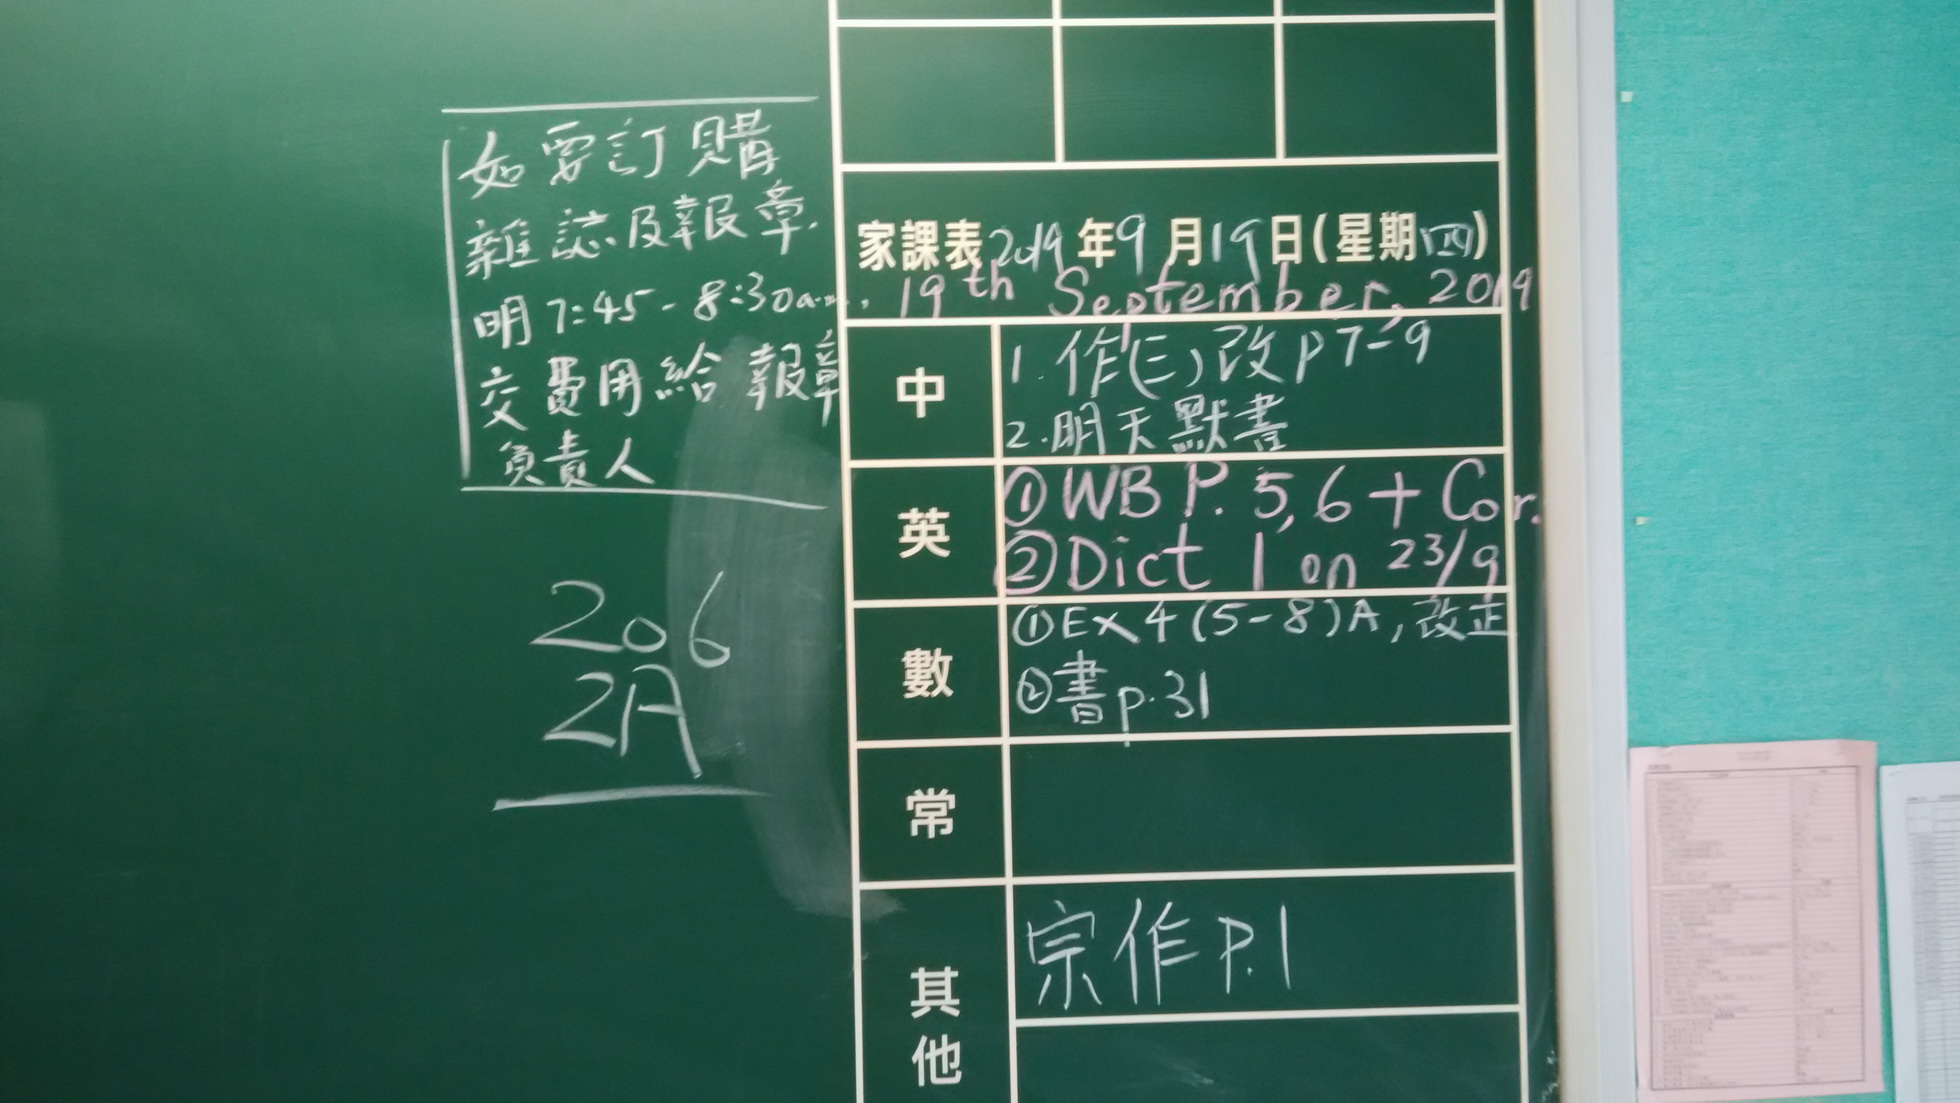 如要訂購
雜誌及報章.
明 7:45 - 8:30a.m.
交費用給報章
負責人
206
2A
家課表 2019 年 9 月 19 日 (星期 四)
19th September, 2019
中
1. 作(三)改 p 7-9
2. 明天默書
英
① WB P. 5, 6 + Cor.
② Dict 1 on 23/9
數
① Ex 4 (5-8) A, 改正
② 書 p.31
常
其他
宗作 P.1